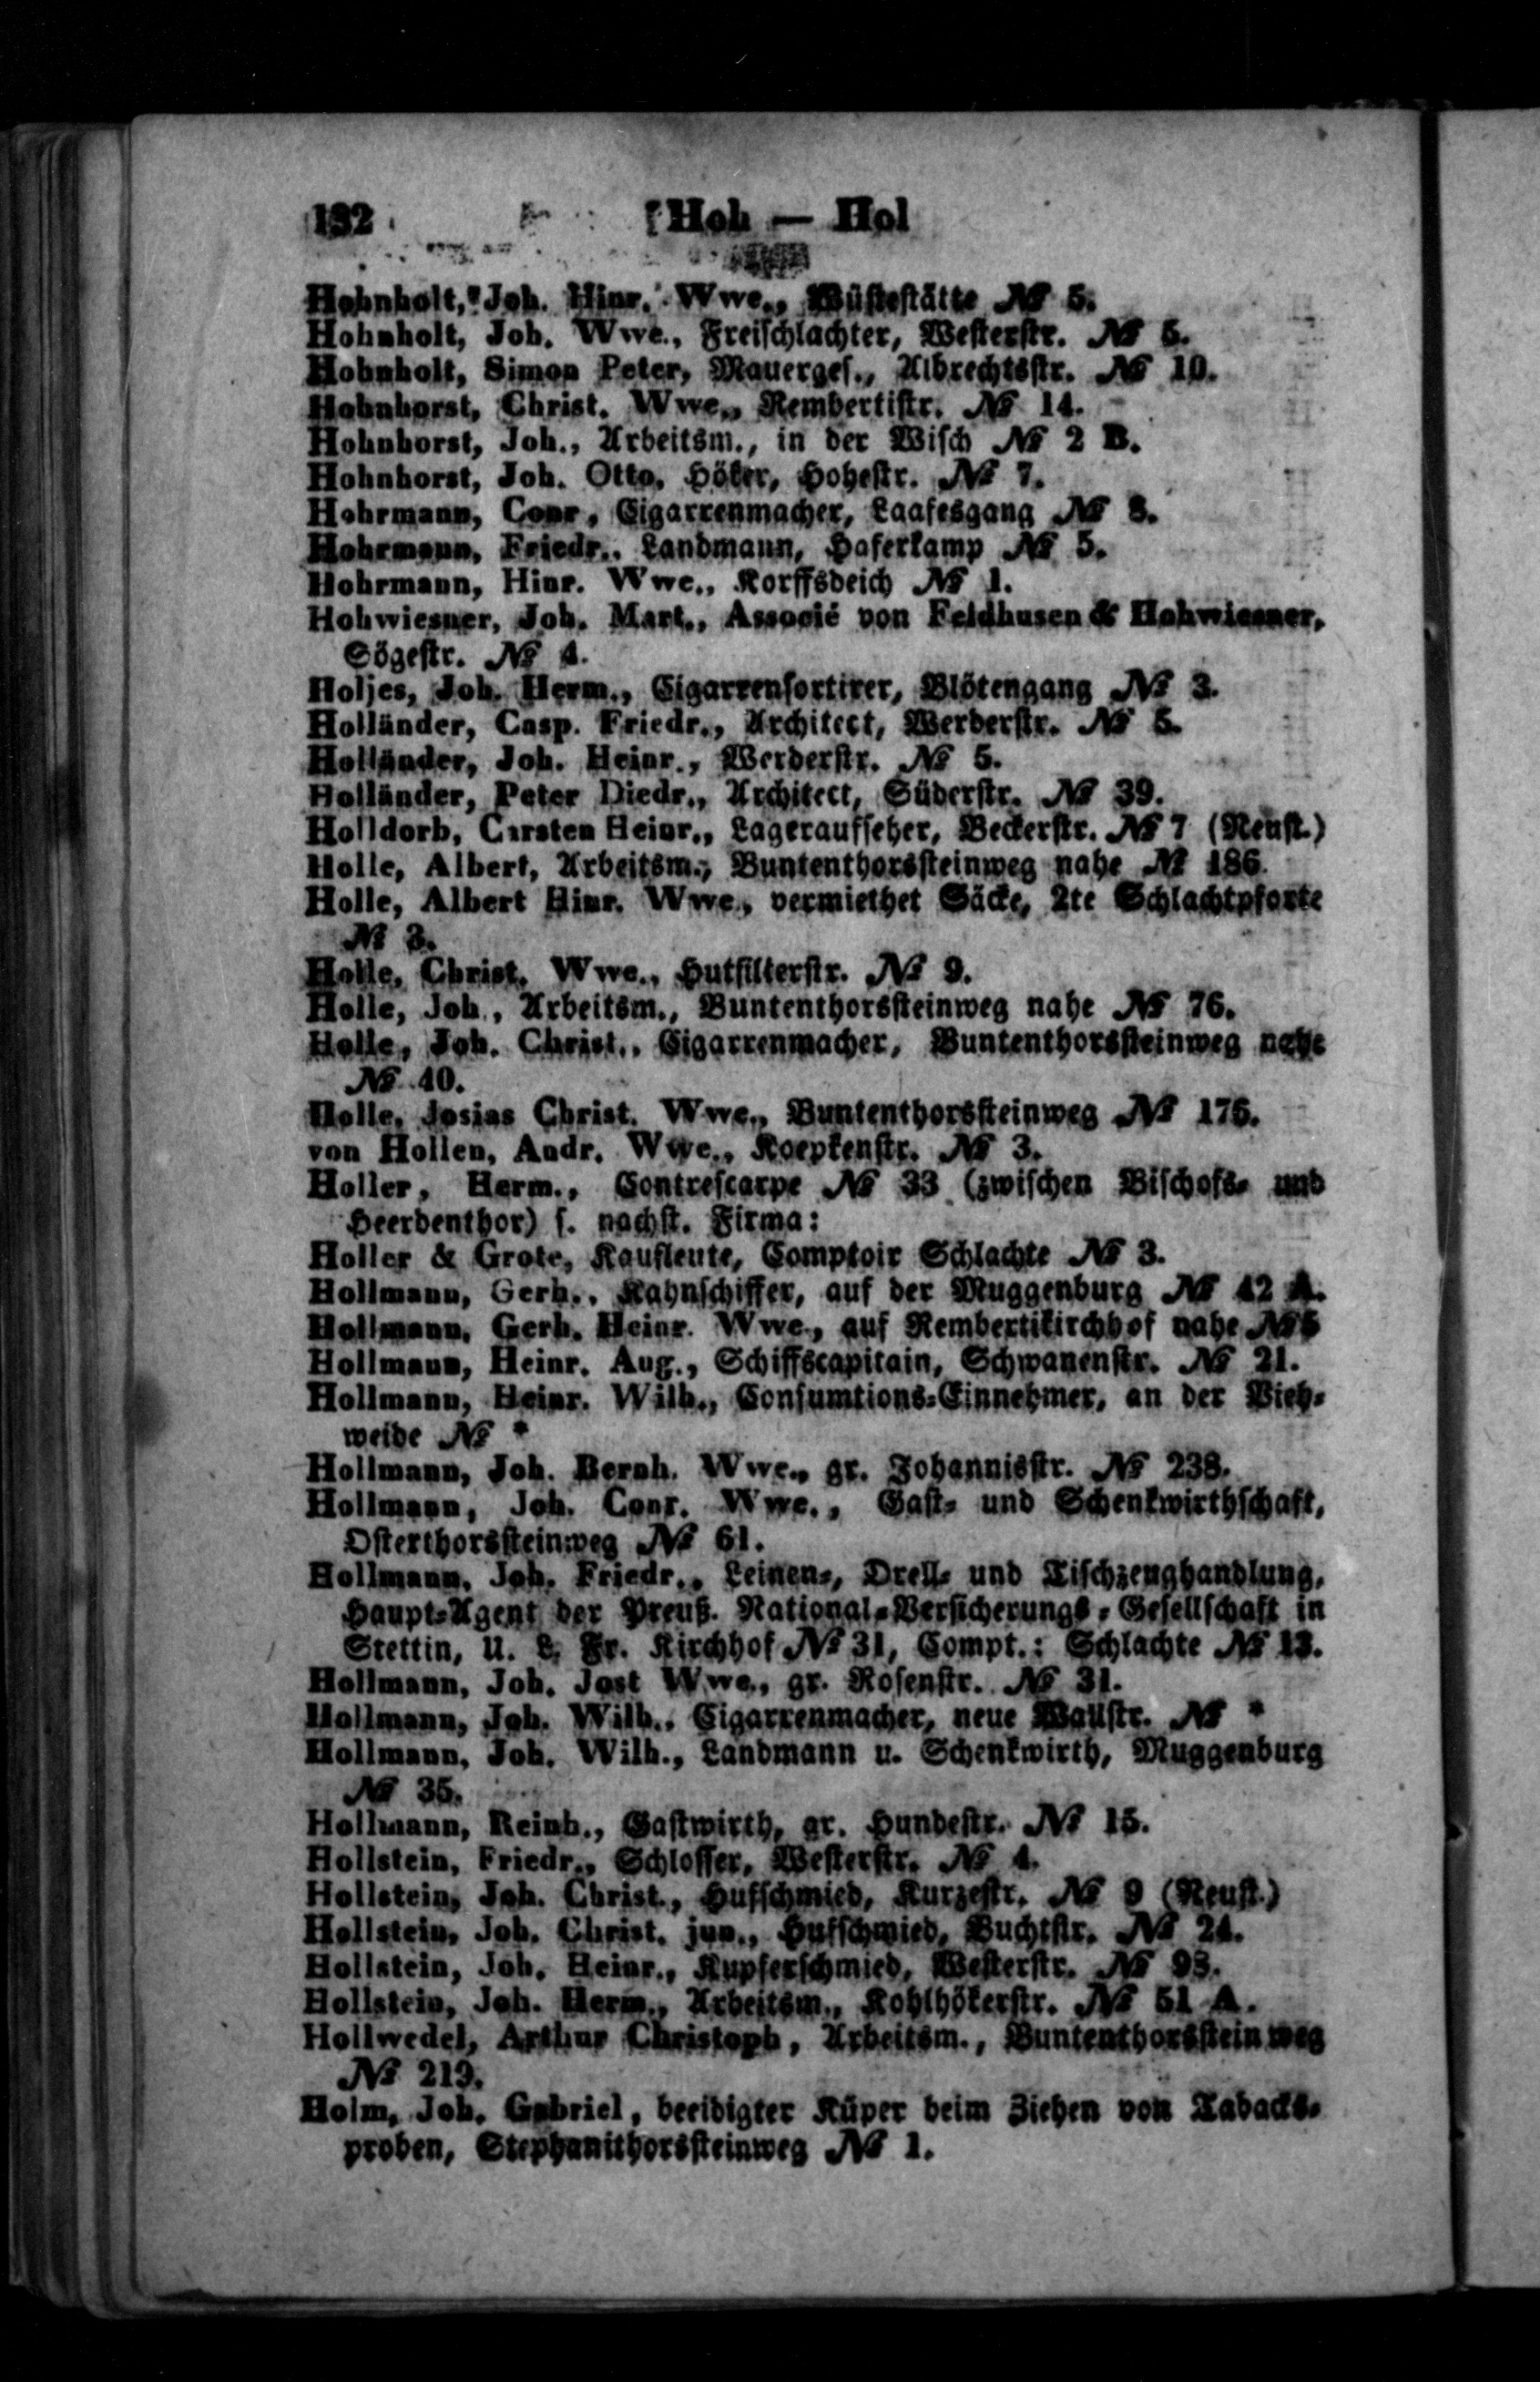 132 Hoh — Hol
Hohnholt, Joh. Hinr. Wwe., Wüstestätte № 5.
Hohnholt, Joh. Wwe., Freischlachter, Westerstr. № 5.
Hohnholt, Simon Peter, Mauerges., Albrechtsstr. № 10.
Hohnhorst, Christ. Wwe., Rembertistr. № 14.
Hohnhorst, Joh., Arbeitsm., in der Wisch № 2 B.
Hohnhorst, Joh. Otto, Höker, Hohestr. № 7.
Hohrmann, Conr., Cigarrenmacher, Laafesgang № 8.
Hohrmann, Friedr., Landmann, Haferkamp № 5.
Hohrmann, Hinr. Wwe., Korffsdeich № 1.
Hohwiesner, Joh. Mart., Associé von Feldhusen & Hohwiesner,
Sögestr. № 4.
Holjes, Joh. Herm., Cigarrensortirer, Blötengang № 3.
Holländer, Casp. Friedr., Architect, Werderstr. № 5.
Holländer, Joh. Heinr., Werderstr. № 5.
Holländer, Peter Diedr., Architect, Süderstr. № 39.
Holldorb, Carsten Heinr., Lageraufseher, Beckerstr. № 7 (Neust.)
Holle, Albert, Arbeitsm., Buntenthorssteinweg nahe № 186.
Holle, Albert Hinr. Wwe., vermiethet Säcke, 2te Schlachtpforte
№ 3.
Holle, Christ. Wwe., Hutfilterstr. № 9.
Holle, Joh., Arbeitsm., Buntenthorssteinweg nahe № 76.
Holle, Joh. Christ., Cigarrenmacher, Buntenthorssteinweg nahe
№ 40.
Holle, Josias Christ. Wwe., Buntenthorssteinweg № 175.
von Hollen, Andr. Wwe., Koepkenstr. № 3.
Holler, Herm., Contrescarpe № 33 (zwischen Bischofs- und
Heerdenthor) s. nachst. Firma:
Holler & Grote, Kaufleute, Comptoir Schlachte № 3.
Hollmann, Gerh., Kahnschiffer, auf der Muggenburg № 42 A.
Hollmann, Gerh. Heinr. Wwe., auf Rembertikirchhof nahe № 5
Hollmann, Heinr. Aug., Schiffscapitain, Schwanenstr. № 21.
Hollmann, Heinr. Wilh., Consumtions-Einnehmer, an der Vieh-
weide № *
Hollmann, Joh. Bernh. Wwe., gr. Johannisstr. № 238.
Hollmann, Joh. Conr. Wwe., Gast- und Schenkwirthschaft,
Osterthorssteinweg № 61.
Hollmann, Joh. Friedr., Leinen-, Drell- und Tischzeughandlung,
Haupt-Agent der Preuß. National-Versicherungs-Gesellschaft in
Stettin, U. L. Fr. Kirchhof № 31, Compt.: Schlachte № 13.
Hollmann, Joh. Jost Wwe., gr. Rosenstr. № 31.
Hollmann, Joh. Wilh., Cigarrenmacher, neue Wallstr. № *
Hollmann, Joh. Wilh., Landmann u. Schenkwirth, Muggenburg
№ 35.
Hollmann, Reinh., Gastwirth, gr. Hundestr. № 15.
Hollstein, Friedr., Schlosser, Westerstr. № 4.
Hollstein, Joh. Christ., Hufschmied, Kurzestr. № 9 (Neust.)
Hollstein, Joh. Christ. jun., Hufschmied, Buchtstr. № 24.
Hollstein, Joh. Heinr., Kupferschmied, Westerstr. № 93.
Hollstein, Joh. Herm., Arbeitsm., Kohlhökerstr. № 51 A.
Hollwedel, Arthur Christoph, Arbeitsm., Buntenthorssteinweg
№ 219.
Holm, Joh. Gabriel, beeidigter Küper beim Ziehen von Tabacks-
proben, Stephanithorssteinweg № 1.